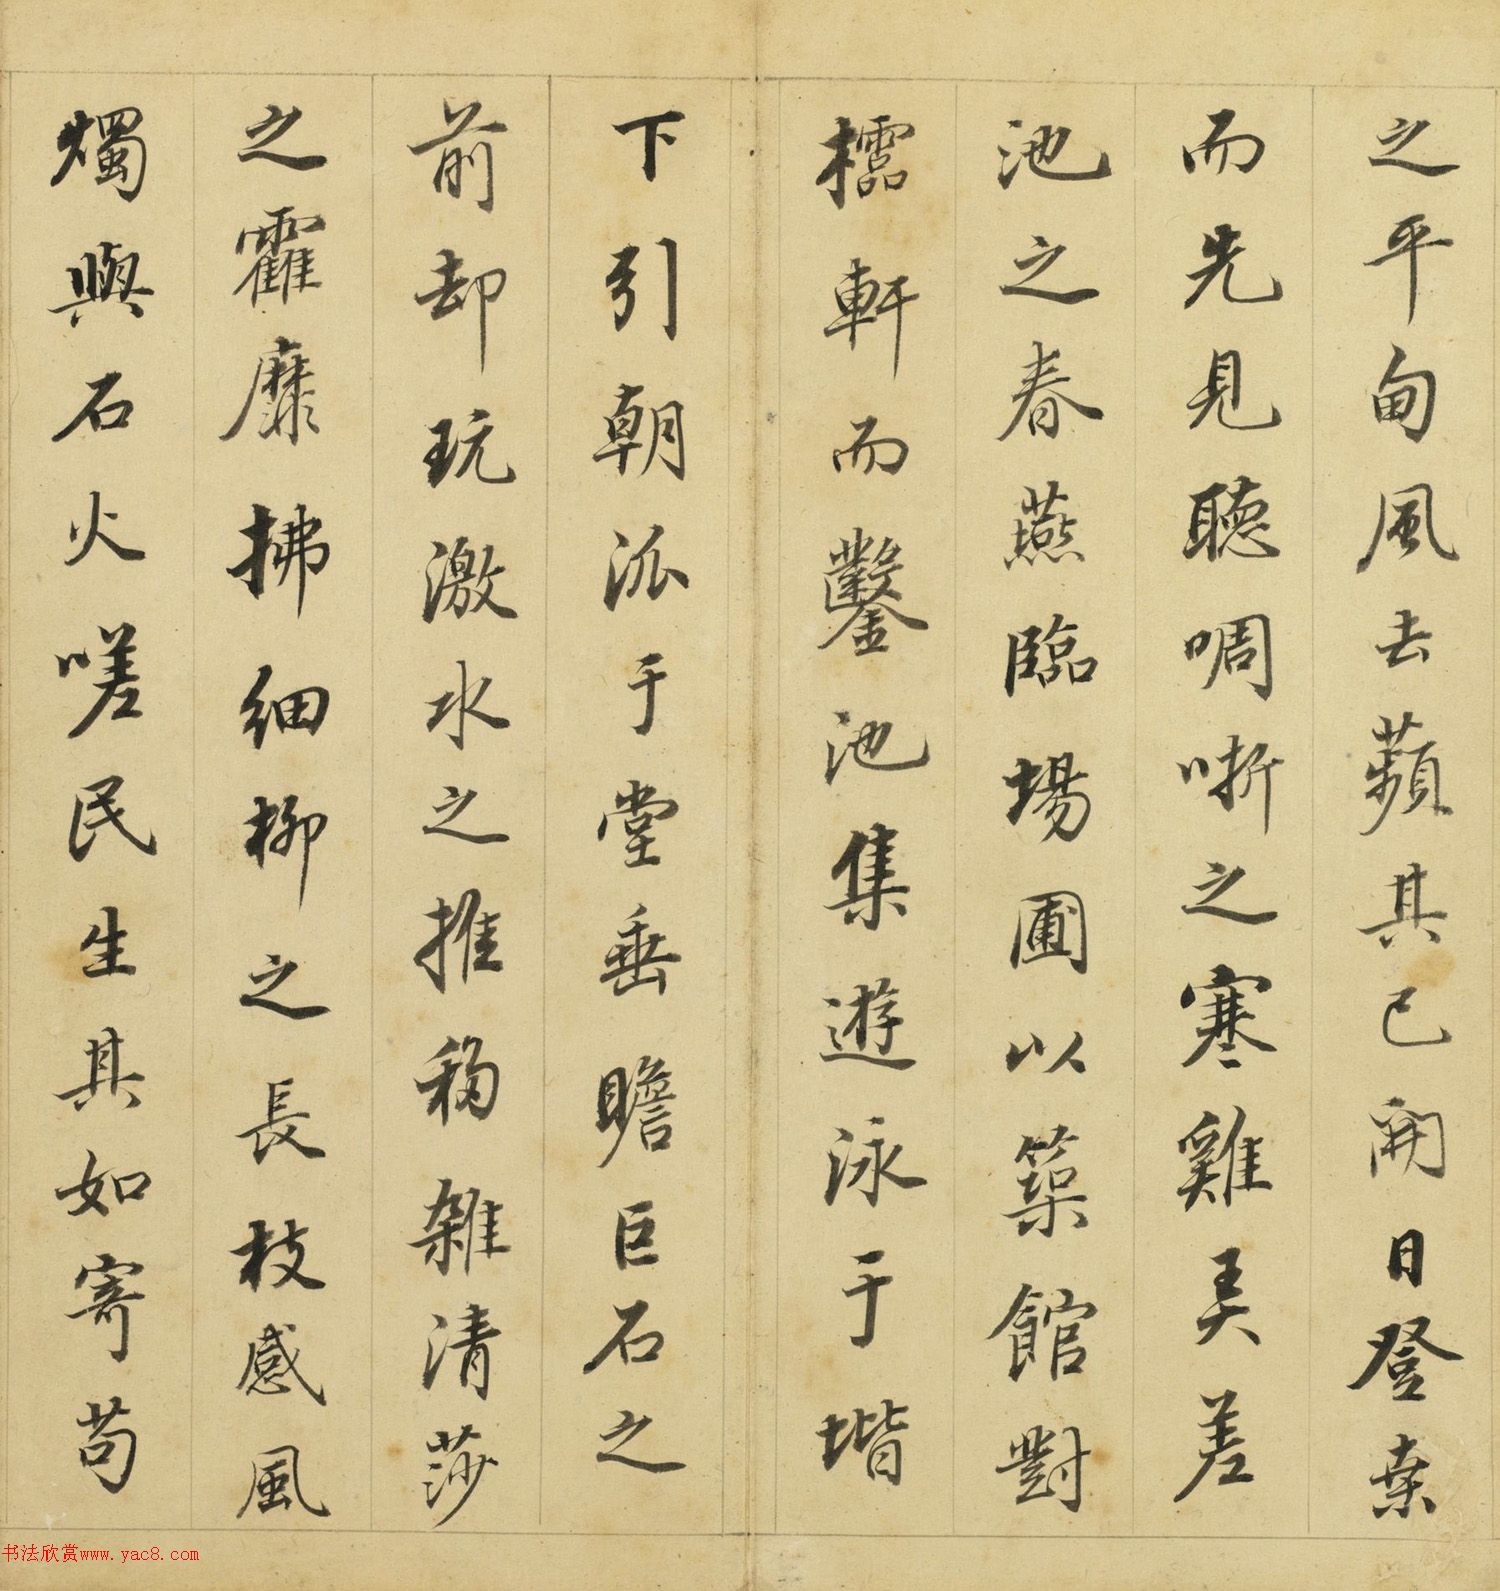 之平甸風去蘋其已開日登桒
而先見聽啁哳之寒雞美差
池之春燕臨場圃以築館對
櫺軒而鑿池集遊泳于堦
下引朝派于堂垂瞻巨石之
前却玩激水之推移雜清莎
之霍靡拂細柳之長枝感風
燭與石火嗟民生其如寄苟
书法欣赏www.yac8.com